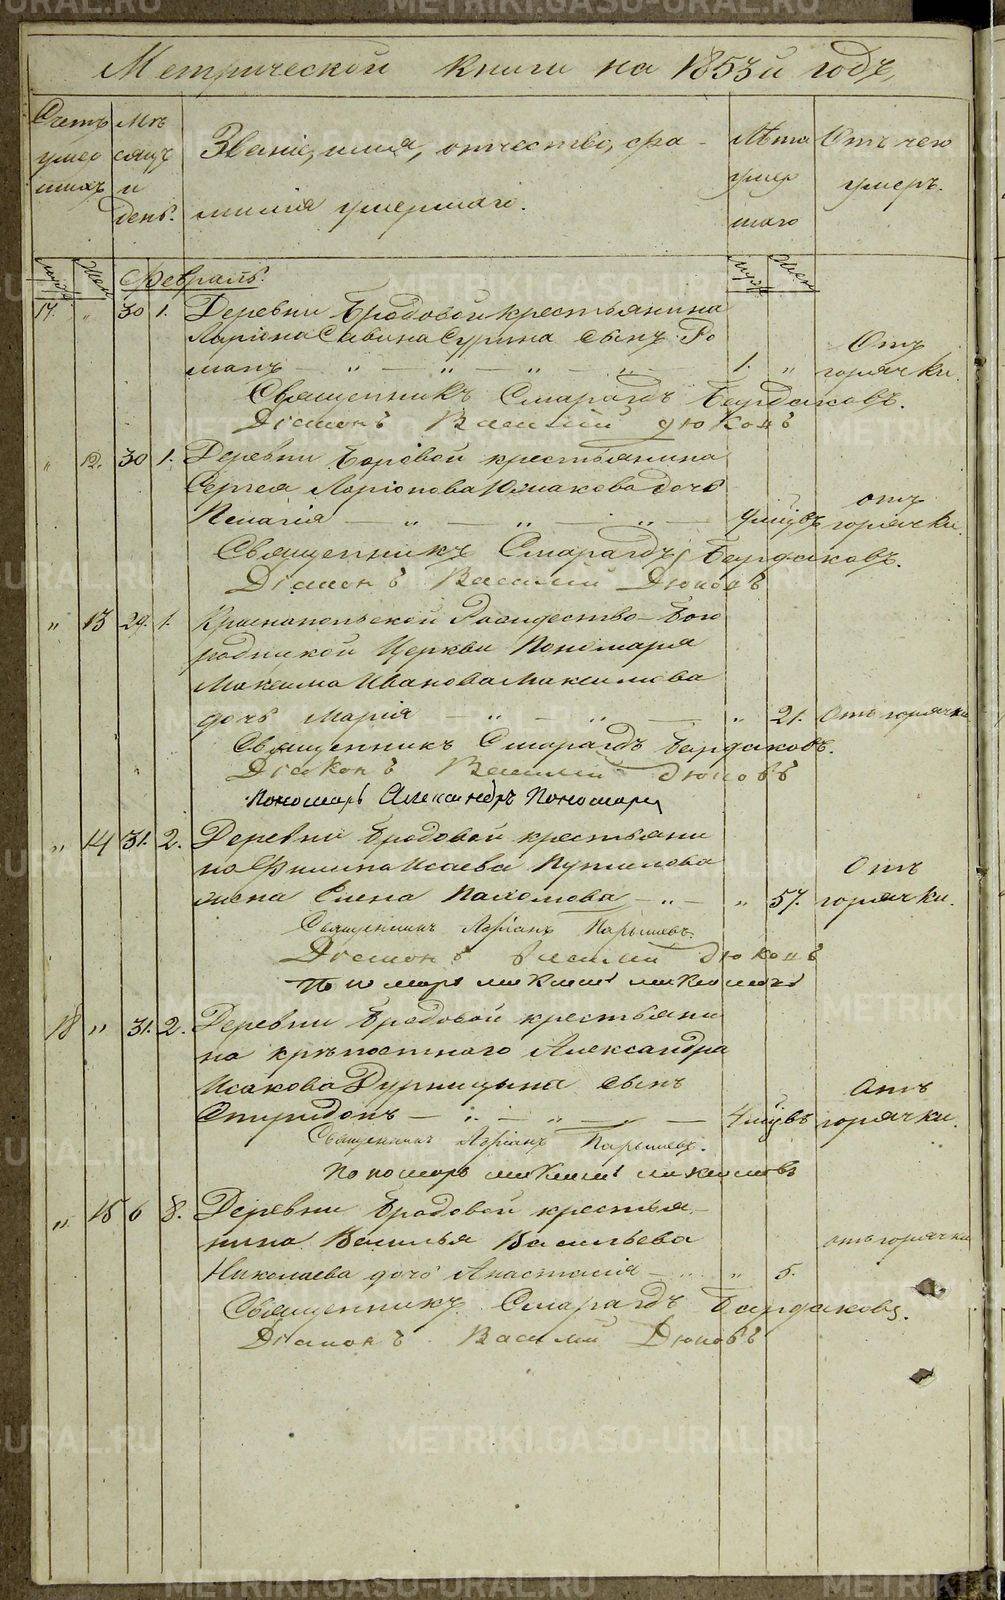 Метрической книги на 1853й годъ,
Счетъ умершихъ
Мѣсяцъ и день.
Званіе, имя, отчество, фамилія умершаго.
Лѣта умершаго
Отъ чего умеръ.
муж. жен.
Февраль.
муж. жен.
17. " 30 1. Деревни Бродовой крестьянина
Ларіона Савина Сурина сынъ Ро
манъ — " — " — " — " — 1. " Отъ горячки.
Священникъ Смарагдъ Бардаковъ.
Діаконъ Василій Дюковъ
" 12. 30 1. Деревни Боровой крестьянина
Сергея Ларіонова дочь
Пелагія — " — " — " — 4 мцвъ отъ горячки.
Священникъ Смарагдъ Бардаковъ.
Діаконъ Василій Дюковъ
" 13 29. 1. Краснопольской Рождество-Бого
родицкой Церкви Пономаря
Максима Иванова Максимова
дочь Марія — " — " — " 21. Отъ горячки
Священникъ Смарагдъ Бардаковъ.
Діаконъ Василій Дюковъ
Пономарь Александръ Пономарев
" 14 31. 2. Деревни Бродовой крестьяни
на Филипа Исаева Путилова
жена Елена Пахомова — " — " 57. Отъ горячки.
Священникъ Адріанъ Парышевъ.
Діаконъ Василий Дюковъ
Пономарь Максимъ Максимовъ
18 " 31. 2. Деревни Бродовой крестьяни
на крѣпостнаго Александра
Исакова Дурницына сынъ
Спиридонъ — " — " — — 4 мцвъ Отъ горячки.
Священникъ Адріанъ Парышевъ.
Пономарь Максимъ Максимовъ
" 15 6 8. Деревни Бродовой крестья-
нина Василья Васильева
Николаева дочь Анастасія — " " 5. отъ горячки
Священникъ Смарагдъ Бардаковъ.
Діаконъ Василій Дюковъ
METRIKI.GASO-URAL.RU